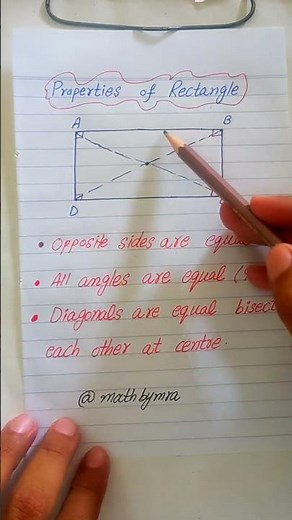 Properties of Rectangle
A B
D
• Opposite sides are
• All angles are equal
• Diagonals are equal bisect
each other at centre.
@mathbymra